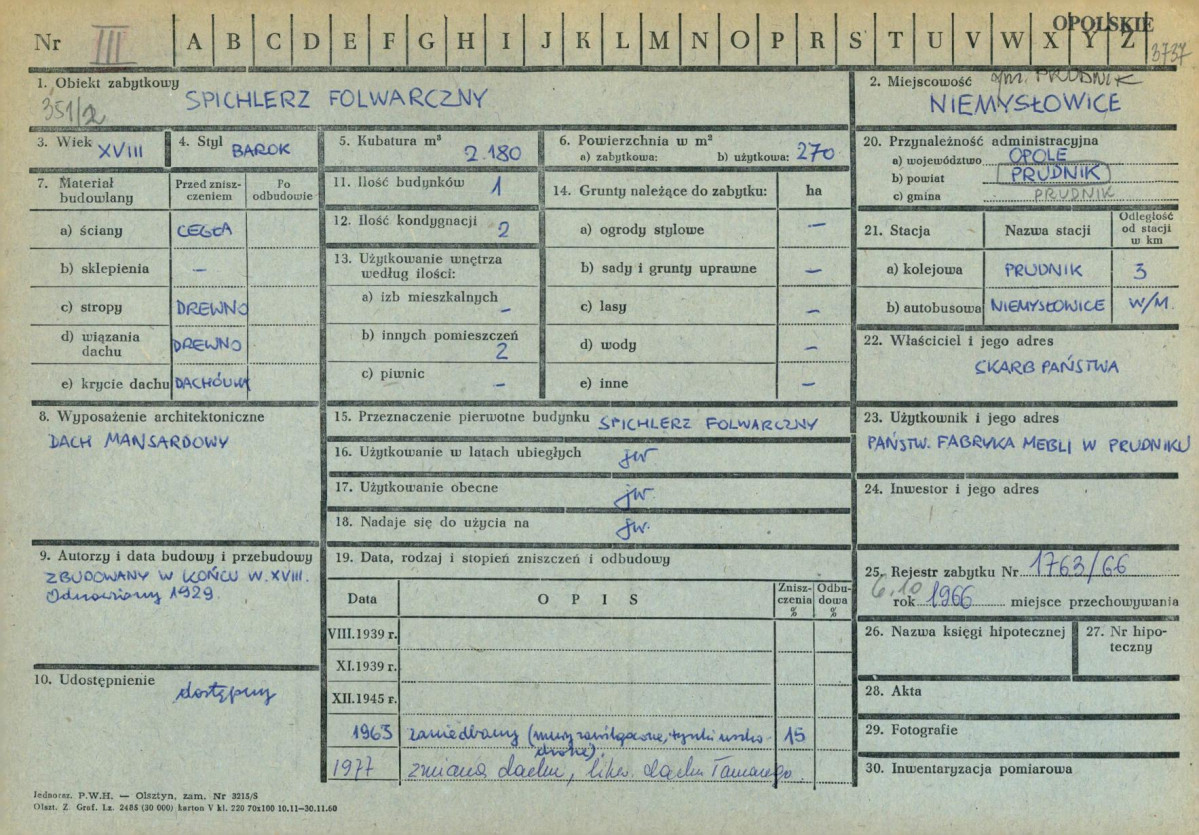 OPOLSKIE
Nr III A B C D E F G H I J K L M N O P R S T U V W X Y Z 3737
1. Obiekt zabytkowy
351/2
SPICHLERZ FOLWARCZNY
2. Miejscowość gm. PRUDNIK
NIEMYSŁOWICE
3. Wiek XVIII
4. Styl BAROK
5. Kubatura m³ 2.180
6. Powierzchnia w m²
a) zabytkowa: b) użytkowa: 270
20. Przynależność administracyjna
a) województwo OPOLE
b) powiat PRUDNIK
c) gmina PRUDNIK
7. Materiał budowlany
Przed zniszczeniem
Po odbudowie
a) ściany CEGŁA
b) sklepienia —
c) stropy DREWNO
d) wiązania dachu DREWNO
e) krycie dachu DACHÓWK
11. Ilość budynków 1
12. Ilość kondygnacji 2
13. Użytkowanie wnętrza
według ilości:
a) izb mieszkalnych —
b) innych pomieszczeń 2
c) piwnic —
14. Grunty należące do zabytku: ha
a) ogrody stylowe —
b) sady i grunty uprawne —
c) lasy —
d) wody —
e) inne —
21. Stacja Nazwa stacji Odległość od stacji w km
a) kolejowa PRUDNIK 3
b) autobusowa NIEMYSŁOWICE W/M.
22. Właściciel i jego adres
SKARB PAŃSTWA
8. Wyposażenie architektoniczne
DACH MANSARDOWY
15. Przeznaczenie pierwotne budynku SPICHLERZ FOLWARCZNY
16. Użytkowanie w latach ubiegłych jw
17. Użytkowanie obecne jw.
18. Nadaje się do użycia na jw.
23. Użytkownik i jego adres
PAŃSTW. FABRYKA MEBLI W PRUDNIKU
24. Inwestor i jego adres
9. Autorzy i data budowy i przebudowy
ZBUDOWANY W KOŃCU W. XVIII.
Odnowiony 1929.
10. Udostępnienie
dostępny
19. Data, rodzaj i stopień zniszczeń i odbudowy
Data OPIS Zniszczenia % Odbudowa %
VIII.1939 r.
XI.1939 r.
XII.1945 r.
1963 zaniedbany (mury zawilgocone, tynki uszkodzone). 15
1977 zmiana dachu, likw. dachu łamanego.
25. Rejestr zabytku Nr 1763/66
6.10
rok 1966 miejsce przechowywania
26. Nazwa księgi hipotecznej
27. Nr hipoteczny
28. Akta
29. Fotografie
30. Inwentaryzacja pomiarowa
Jednoraz. P.W.H. — Olsztyn, zam. Nr 3215/S
Olszt. Z. Graf. Lz. 2485 (30 000) karton V kl. 220 70x100 10.11—30.11.60